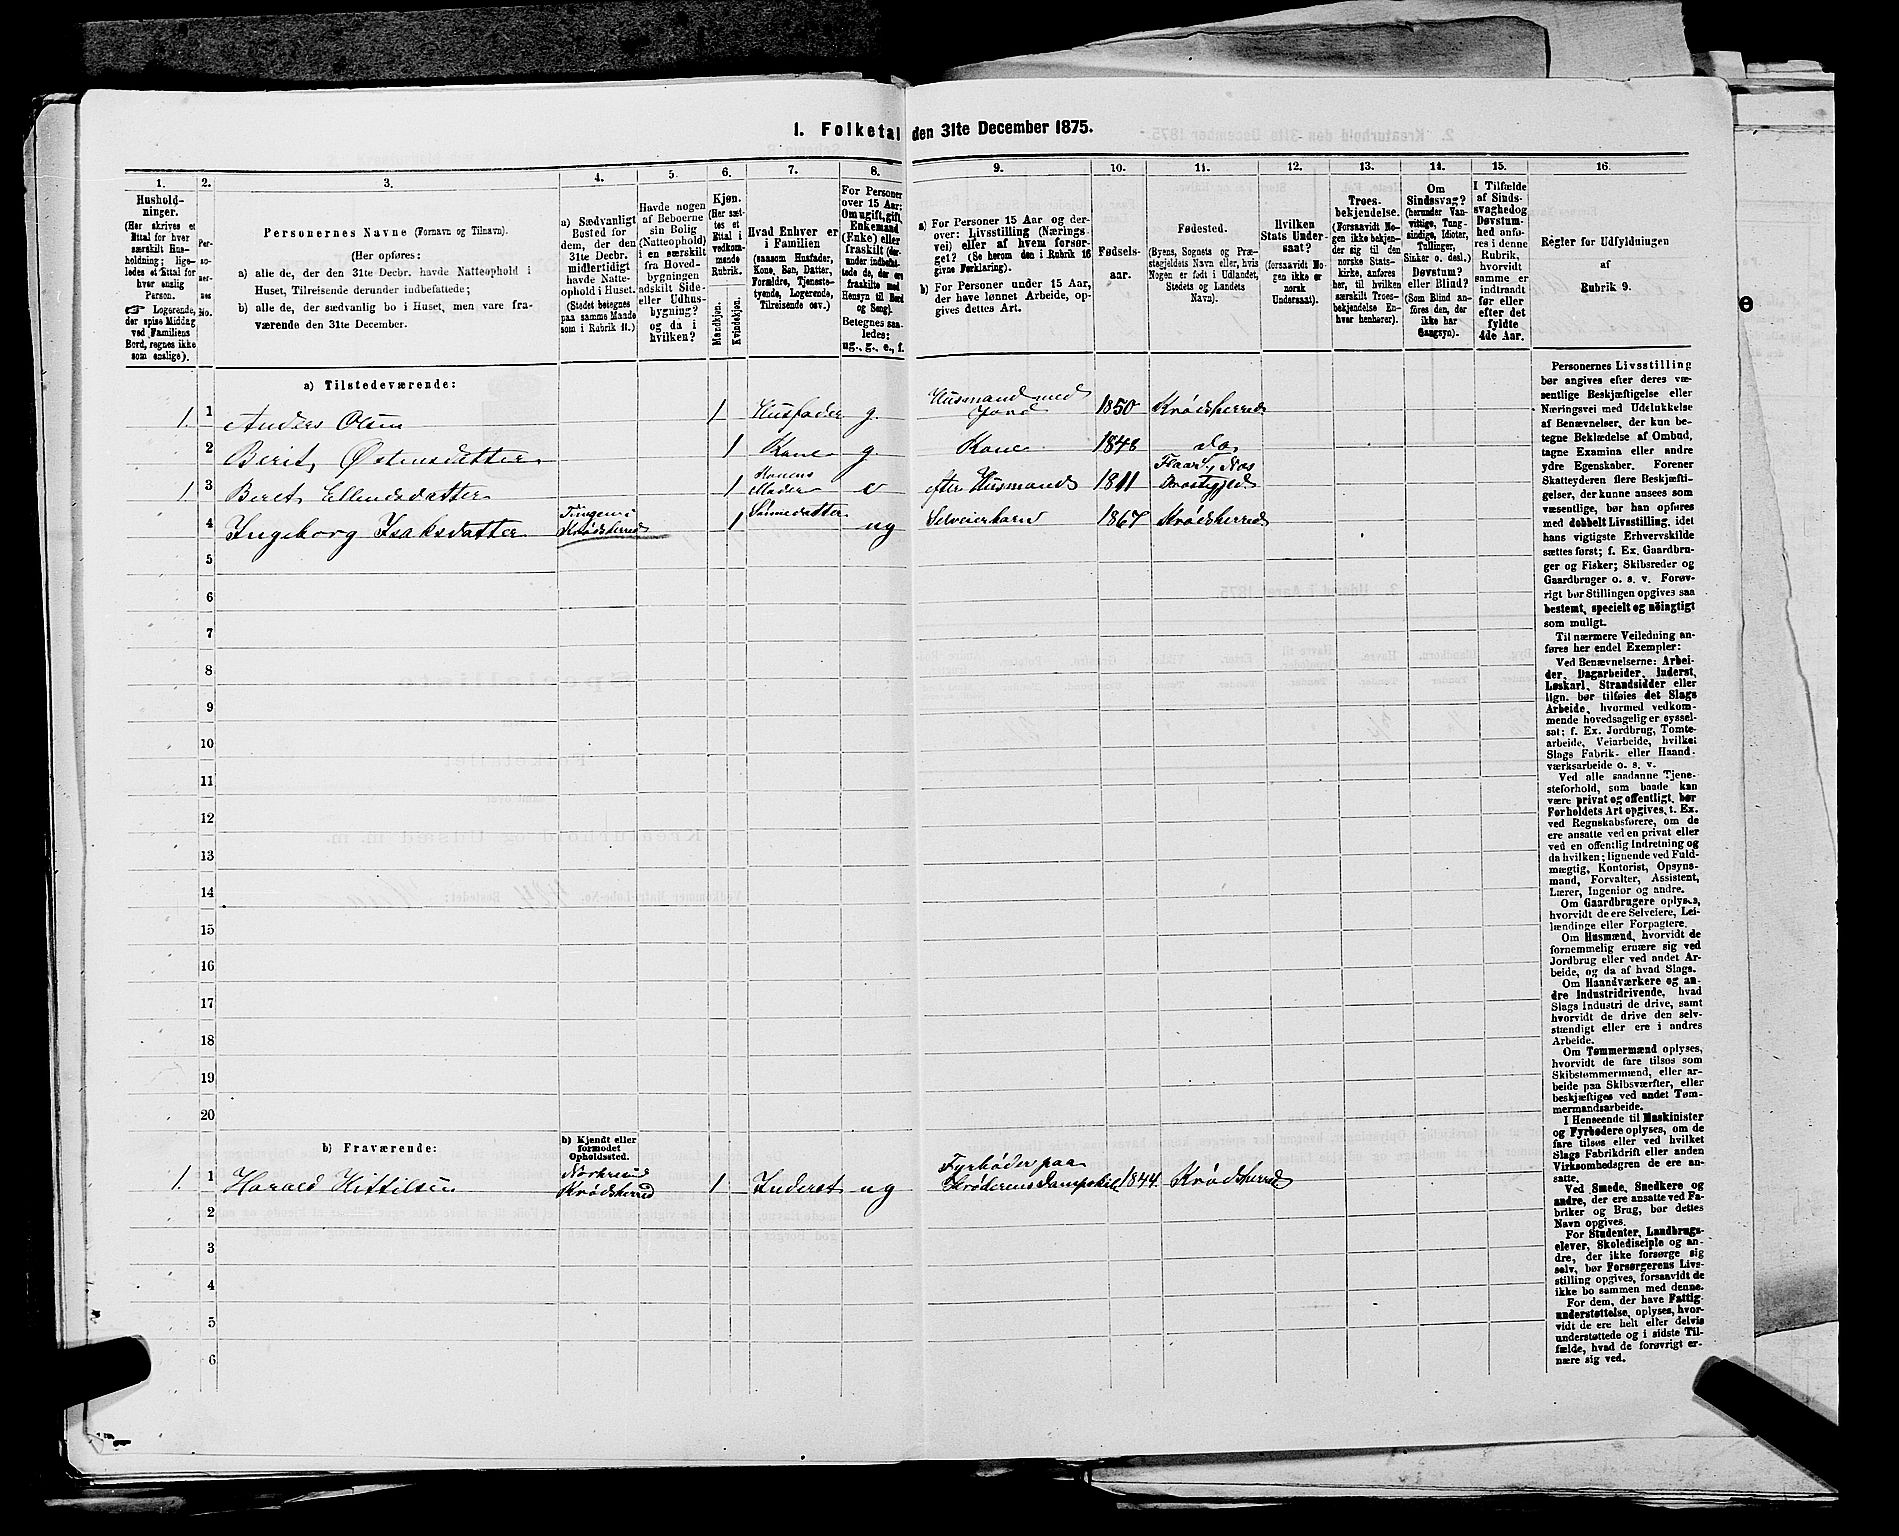 1. Folketal den 31te December 1875.
1. 2. 3. 4. 5. 6. 7. 8. 9. 10. 11. 12. 13. 14. 15. 16.
Hushold-
ninger.
(Her skrives et
Ettal for hver
særskilt Hus-
holdning; lige-
ledes et Ettal for
hver enslig
Person.
☞ Logerende,
der spise Middag
ved Familiens
Bord, regnes ikke
som enslige).
Per-
so-
ner-
nes
No.
Personernes Navne (Fornavn og Tilnavn).
(Her opføres:
a) alle de, der den 31te Decbr. havde Natteophold i
Huset, Tilreisende derunder indbefattede;
b) alle de, der sædvanlig bo i Huset, men vare fra-
værende den 31te December.
a) Sædvanligt
Bosted for
dem, der den
31te Decbr.
midlertidigt
havde Natte-
ophold i Huset
(Stedet betegnes
paa samme Maade
som i Rubrik 11.)
Havde nogen
af Beboerne
sin Bolig
(Natteophold)
i en særskilt
fra Hoved-
bygningen
adskilt Side-
eller Udhus-
bygning?
og da i
hvilken?
Kjøn.
(Her sæt-
tes et
Ettal i
vedkom-
mende
Rubrik.)
Mandkjøn.
Kvindekjøn.
Hvad Enhver er
i Familien
(saasom Husfader,
Kone, Søn, Datter,
Forældre, Tjeneste-
tyende, Logerende,
Tilreisende osv.)
For Personer
over 15 Aar:
Om ugift, gift,
Enkemand
(Enke) eller
fraskilt (der-
under indbefat-
tede de, der ere
fraskilte med
Hensyn til Bord
og Seng).
Betegnes saa-
ledes:
ug., g., e., f.
a) For Personer 15 Aar og der-
over: Livsstilling (Nærings-
vei) eller af hvem forsør-
get? (Se herom den i Rubrik 16
givne Forklaring).
b) For Personer under 15 Aar,
der have lønnet Arbeide, op-
gives dettes Art.
Fødsels-
aar.
Fødested.
(Byens, Sognets og Præ-
stegjeldets Navn eller, hvis
Nogen er født i Udlandet,
Stedets og Landets
Navn).
Hvilken
Stats Under-
saat?
(forsaavidt No-
gen ikke er
norsk
Undersaat).
Troes-
bekjendelse.
(Forsaavidt No-
gen ikke bekjen-
der sig til den
norske Stats-
kirke, anføres
her, til hvilken
særskilt Troes-
bekjendelse En-
hver henhører).
Om
Sindssvag?
(herunder Van-
vittige, Tung-
sindige, Idioter,
Tullinger,
Sinker o. desl.)
Døvstum?
eller Blind?
(Som Blind an-
føres den, der
ikke har
Gangsyn).
I Tilfælde
af Sinds-
svaghed og
Døvstum-
hed anfø-
res i denne
Rubrik,
hvorvidt
samme er
indtraadt
før eller
efter det
fyldte
4de Aar.
Regler for Udfyldningen
af
Rubrik 9.
a) Tilstedeværende:
1. 1 Anders Olsen 1 Husfader g. Husmand med Jord 1850 Krødsherred
2 Berit Østensdatter 1 Kone g Kone 1848 do
1 3 Beret Ellendsdatter 1 Konens Moder e efter Husmand 1811 Næs Præstegjeld
4 Ingeborg Isaksdatter Krødsherred 1 Sønnedatter ug Selveierbarn 1867 Krødsherred
5
6
7
8
9
10
11
12
13
14
15
16
17
18
19
20
b) Fraværende:
b) Kjendt eller
formodet
Opholdssted.
1. 1 Harald Kittilsen Noresund Krødsherred 1 Inderst ug Fyrbøder paa Krøderens Dampskib 1844. Krødsherred
2
3
4
5
6
Personernes Livsstilling
bør angives efter deres væ-
sentlige Beskjæftigelse eller
Næringsvei med Udelukkelse
af Benævnelser, der kun be-
tegne Beklædelse af Ombud,
tagne Examina eller andre
ydre Egenskaber. Forener
Skatteyderen flere Beskjæfti-
gelser, der kunne ansees som
væsentlige, bør han opføres
med dobbelt Livsstilling, idet
hans vigtigste Erhvervskilde
sættes først; f. Ex. Gaardbru-
ger og Fisker; Skibsreder og
Gaardbruger o. s. v. Forøv-
rigt bør Stillingen opgives saa
bestemt, specielt og nøiagtigt
som muligt.
Til nærmere Veiledning an-
føres her endel Exempler:
Ved Benævnelserne: Arbei-
der, Dagarbeider, Inderst,
Løskarl, Strandsidder eller
lign. bør tilføies det Slags
Arbeide, hvormed vedkom-
mende hovedsagelig er syssel-
sat; f. Ex. Jordbrug, Tomte-
arbeide, Veiarbeide, hvilket
Slags Fabrik- eller Haand-
værksarbeide o. s. v.
Ved alle saadanne Tjene-
steforhold, som baade kan
være privat og offentligt, bør
Forholdets Art opgives, t. Ex.
ved Regnskabsførere, om de
ere ansatte ved en privat eller
ved en offentlig Indretning og
da hvilken; lignende ved Fuld-
mægtig, Kontorist, Opsyns-
mand, Forvalter, Assistent,
Lærer, Ingeniør og andre.
Om Gaardbrugere oplyses,
hvorvidt de ere Selveiere, Lei-
lændinge eller Forpagtere.
Om Husmænd, hvorvidt de
fornemmelig ernære sig ved
Jordbrug eller ved andet Ar-
beide, og da af hvad Slags.
Om Haandværkere og an-
dre Industridrivende, hvad
Slags Industri de drive, samt
hvorvidt de drive den selv-
stændigt eller ere i andres
Arbeide.
Om Tømmermænd oplyses,
hvorvidt de fare tilsøs som
Skibstømmermænd, eller ar-
beide paa Skibsværfter, eller
beskjæftiges ved andet Tøm-
mermandsarbeide.
I Henseende til Maskinister
og Fyrbødere oplyses, om de
fare tilsøs eller ved hvilket
Slags Fabrikdrift eller anden
Virksomhedsgren de ere an-
satte.
Ved Smede, Snedkere og
andre, der ere ansatte ved Fa-
briker og Brug, bør dettes
Navn opgives.
For Studenter, Landbrugs-
elever, Skoledisciple og an-
dre, der ikke forsørge sig
selv, bør Forsørgerens Livs-
stilling opgives, forsaavidt de
ikke bo sammen med denne.
For dem, der have Fattig-
understøttelse, oplyses, hvor-
vidt de ere helt eller delvis
understøttede og i sidste Til-
fælde, hvad de forøvrigt er-
nære sig ved.